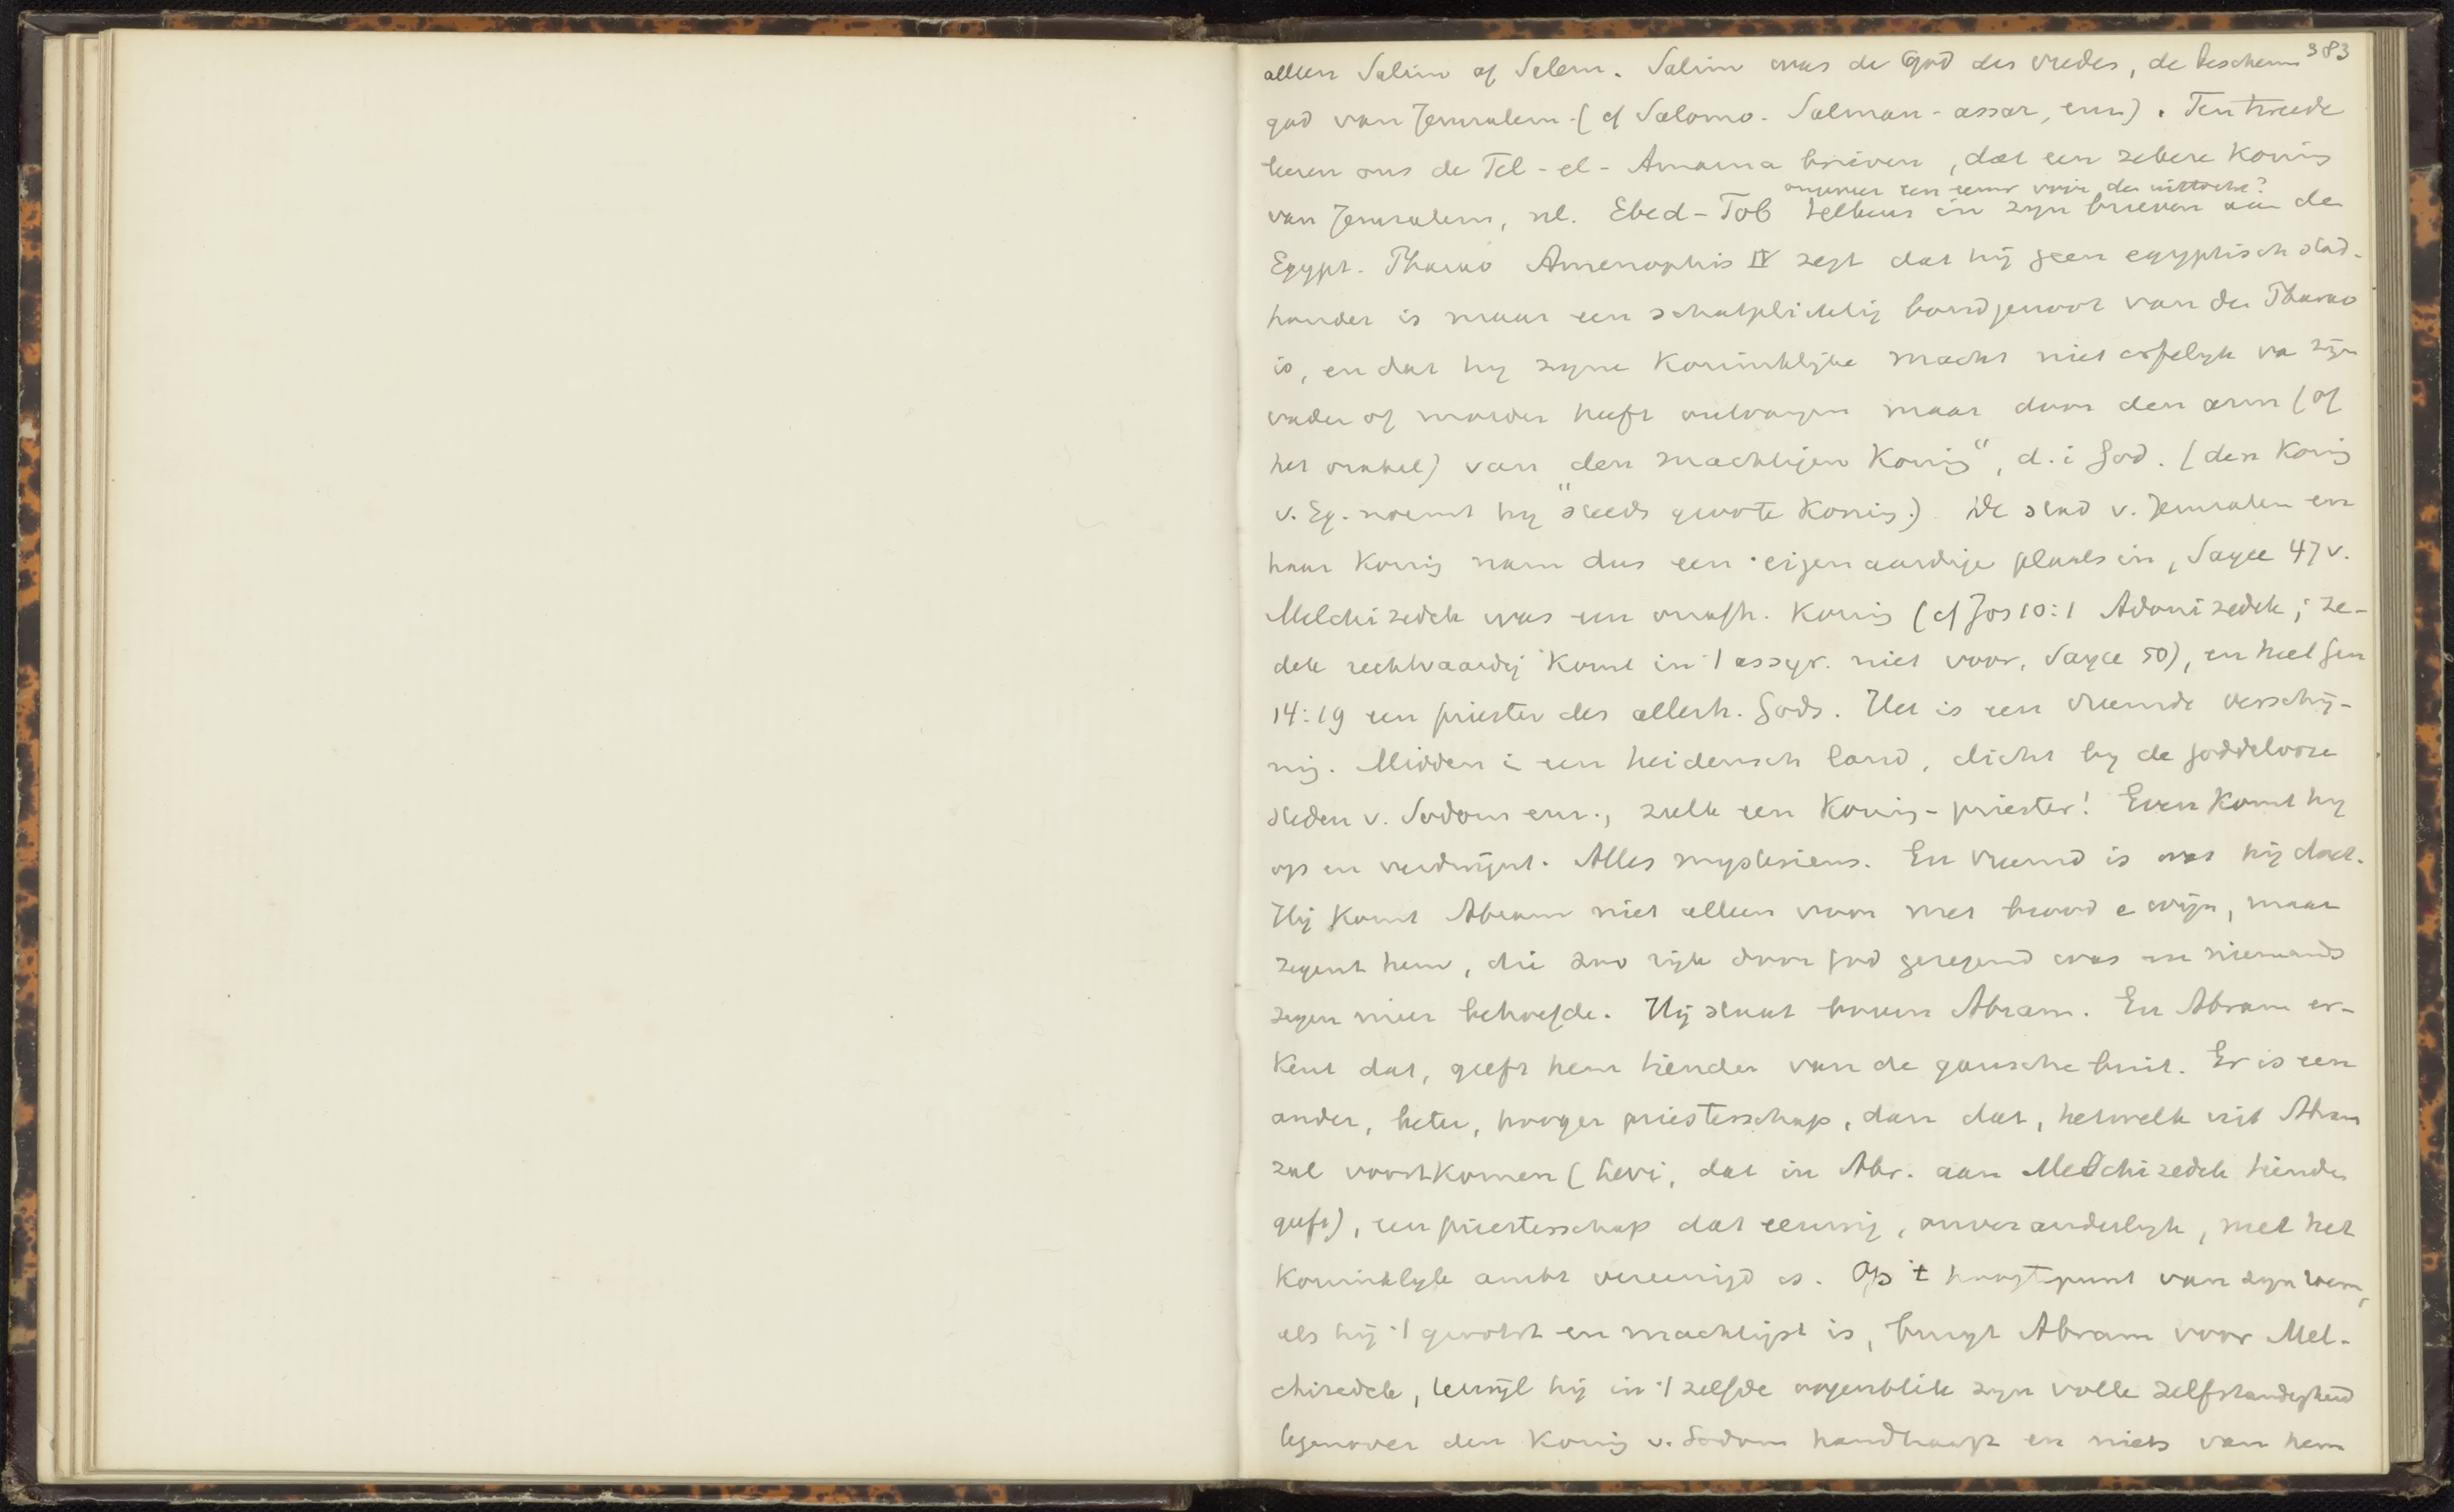 383
alleen Salim of Salem. Salim was de god des vredes, de bescherm
god van Jerusalem (cf Salomo. Salman-assar, enz). Ten tweede
leeren ons de Tel-el-Amarna brieven, dat een zekere Koning
ongeveer een eeuw voor den uittocht?
van Jerusalem, nl. Ebed-Tob telkens in zijn brieven aan de
Egypt. Pharao Amenophis IV zegt dat hij geen egyptisch stad-
houder is maar een schatplichtig bondgenoot van den Pharao
is, en dat hij zijne Koninklijke macht niet erfelijk va zijn
vader of moeder heeft ontvangen maar door den arm (of
het orakel) van den machtigen Konig", d.i God. (den Konig
v. Eg. noemt hij "steeds groote Konig.) De stad v. Jerusalem en
haar Konig nam dus een eigenaardige plaats in, Sayce 47v.
Melchizedek was een onafh. Konig (cf Jos 10:1 Adonizedek; ze-
dek rechtvaardig komt in 't assyr. niet voor, Sayce 50), en heet Gen
14:19 een priester des allerh. Gods. Het is een vreemde verschij-
nig. Midden i een heidensch land, dicht bij de goddelooze
steden v. Sodom enz., zulk een Konig-priester! Even Komt hij
op en verdwijnt. Alles mysterieus. En vreemd is wat hij doet.
Hij Komt Abram niet alleen voor met brood e wijn, maar
zegent hem, die zoo rijk door God gezegend was en niemands
zegen meer behoefde. Hij staat boven Abram. En Abram er-
Kent dat, geeft hem tienden van de gansche buit. Er is een
ander, beter, hooger priesterschap, dan dat, hetwelk uit Abram
zal voortkomen (Levi, dat in Abr. aan Melchizedek tienden
geeft), een priesterschap dat eeuwig, onveranderlijk, met het
Koninklijk ambt vereenigd is. Op 't hoogtepunt van zijn roem,
als hij 't grootst en machtigst is, buigt Abram voor Mel-
chizedek, terwijl hij in 't zelfde oogenblik zijn volle zelfstandigheid
tegenover den Konig v. Sodom handhaaft en niets van hem